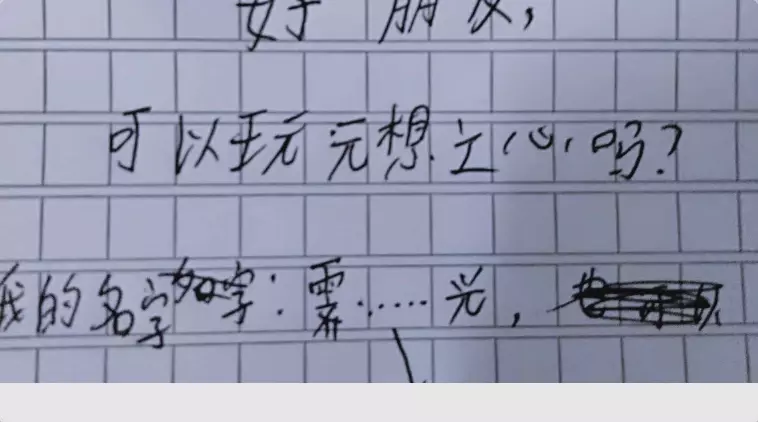 好朋友,
可以玩元想立心吗?
我的名字字:霁……光,